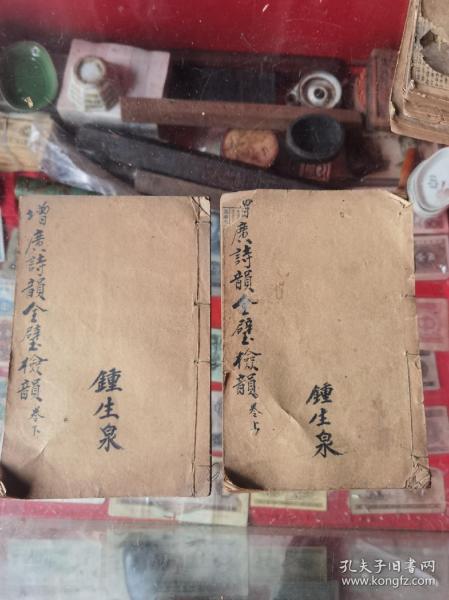 增廣詩韻全璧檢韻卷下
鍾生泉
增廣詩韻全璧檢韻卷上
鍾生泉
孔夫子旧书网
www.kongfz.com